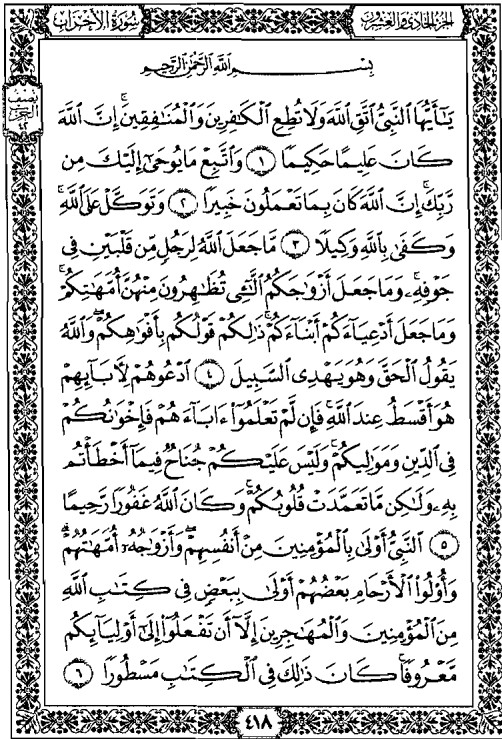 الجزء الحادي والعشرون
سورة الأحزاب
نصف
الحزب
٤٢
بِسْمِ اللَّهِ الرَّحْمَٰنِ الرَّحِيمِ
يَـٰٓأَيُّهَا ٱلنَّبِيُّ ٱتَّقِ ٱللَّهَ وَلَا تُطِعِ ٱلْكَـٰفِرِينَ وَٱلْمُنَـٰفِقِينَۗ إِنَّ ٱللَّهَ
كَانَ عَلِيمًا حَكِيمًا ۝١ وَٱتَّبِعْ مَا يُوحَىٰٓ إِلَيْكَ مِن
رَّبِّكَۚ إِنَّ ٱللَّهَ كَانَ بِمَا تَعْمَلُونَ خَبِيرًا ۝٢ وَتَوَكَّلْ عَلَى ٱللَّهِۚ
وَكَفَىٰ بِٱللَّهِ وَكِيلًا ۝٣ مَّا جَعَلَ ٱللَّهُ لِرَجُلٍ مِّن قَلْبَيْنِ فِى
جَوْفِهِۦۚ وَمَا جَعَلَ أَزْوَٰجَكُمُ ٱلَّـٰٓـِٔى تُظَـٰهِرُونَ مِنْهُنَّ أُمَّهَـٰتِكُمْۚ
وَمَا جَعَلَ أَدْعِيَآءَكُمْ أَبْنَآءَكُمْۚ ذَٰلِكُمْ قَوْلُكُم بِأَفْوَٰهِكُمْۖ وَٱللَّهُ
يَقُولُ ٱلْحَقَّ وَهُوَ يَهْدِى ٱلسَّبِيلَ ۝٤ ٱدْعُوهُمْ لِـَٔابَآئِهِمْ
هُوَ أَقْسَطُ عِندَ ٱللَّهِۚ فَإِن لَّمْ تَعْلَمُوٓا۟ ءَابَآءَهُمْ فَإِخْوَٰنُكُمْ
فِى ٱلدِّينِ وَمَوَٰلِيكُمْۚ وَلَيْسَ عَلَيْكُمْ جُنَاحٌ فِيمَآ أَخْطَأْتُم
بِهِۦ وَلَـٰكِن مَّا تَعَمَّدَتْ قُلُوبُكُمْۚ وَكَانَ ٱللَّهُ غَفُورًا رَّحِيمًا
۝٥ ٱلنَّبِيُّ أَوْلَىٰ بِٱلْمُؤْمِنِينَ مِنْ أَنفُسِهِمْۖ وَأَزْوَٰجُهُۥٓ أُمَّهَـٰتُهُمْۗ
وَأُو۟لُوا۟ ٱلْأَرْحَامِ بَعْضُهُمْ أَوْلَىٰ بِبَعْضٍ فِى كِتَـٰبِ ٱللَّهِ
مِنَ ٱلْمُؤْمِنِينَ وَٱلْمُهَـٰجِرِينَ إِلَّآ أَن تَفْعَلُوٓا۟ إِلَىٰٓ أَوْلِيَآئِكُم
مَّعْرُوفًاۚ كَانَ ذَٰلِكَ فِى ٱلْكِتَـٰبِ مَسْطُورًا ۝٦
٤١٨